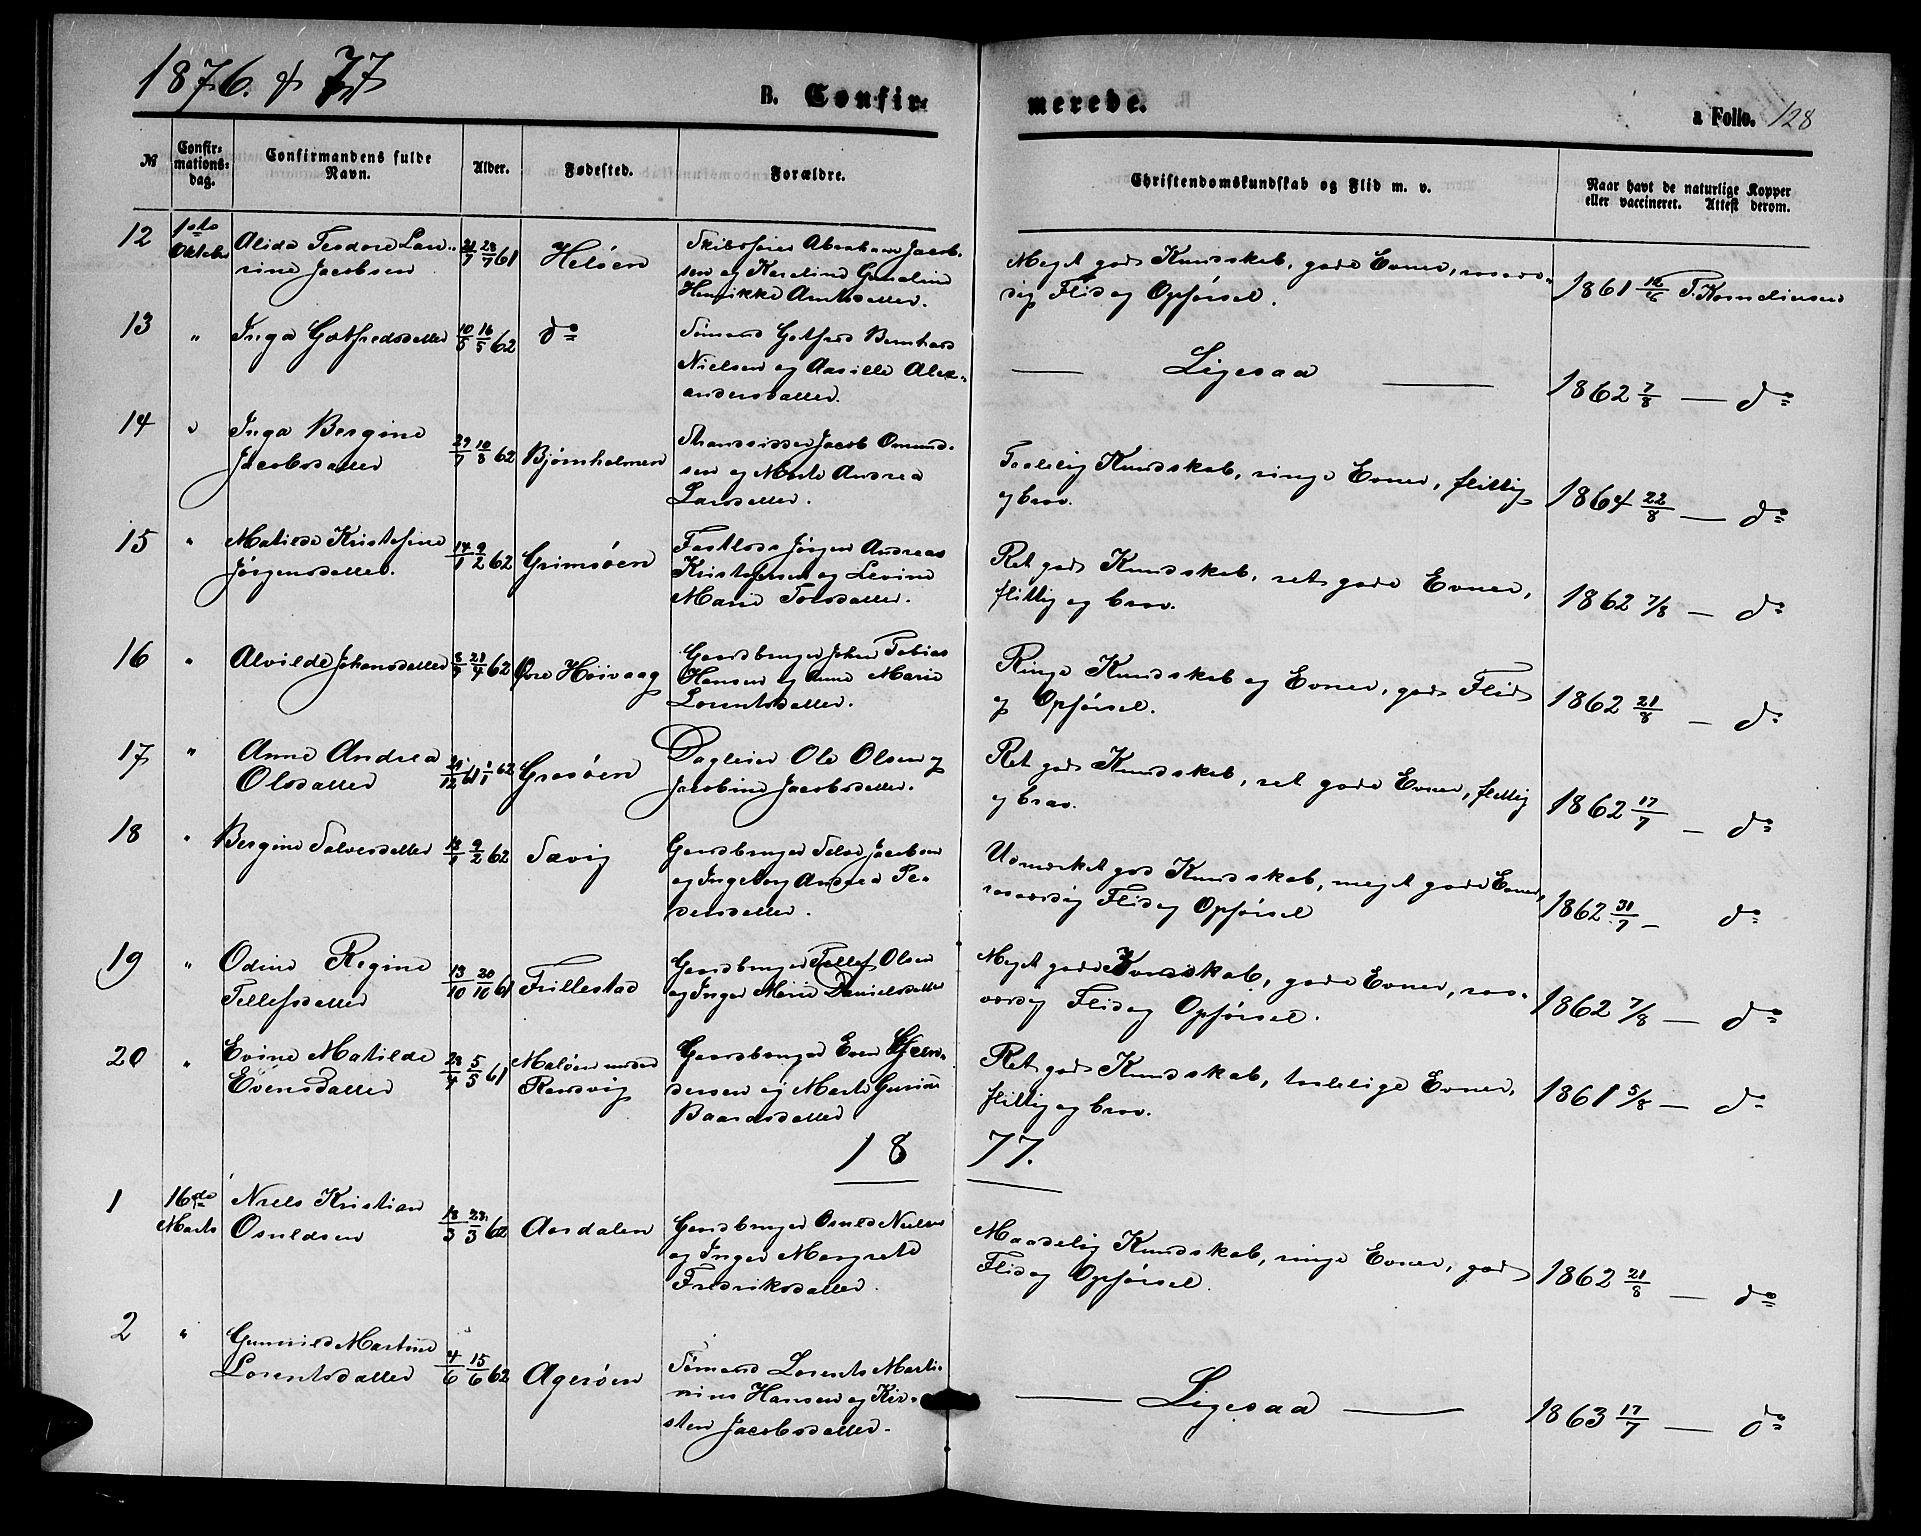 1876. & 77
B. Confir-
merede.
a Folio. 128
№
Confir-
mations-
dag.
Confirmandens fulde
Navn.
Alder.
Fødested.
Forældre.
Christendomskundskab og Flid m. v.
Naar havt de naturlige Kopper
eller vaccineret. Attest derom.
12
1ste
Oktober
Alida Teodore Lau-
rine Jacobsen
21/7 28/7 61
Heløen
Skibsfører Abraham Jacob-
sen og Karoline Guneline
Henrikke Arntsdatter.
Meget gode Kundskab, gode Evner, rosvær-
dig Flid og Opførsel.
1861 12/6 T. Korneliusen
13
"
Inga Gotfredsdatter
10/5 16/5 62
do
Sømand Gotfred Bernhard
Nielsen og Aasille Alex-
andersdatter.
— Ligesaa —
1862 7/8 — do
14
"
Inga Bergine
Jacobsdatter
29/7 10/8 62
Bjørnholmen
Strandsidder Jacob Omund-
sen og Marte Andrea
Larsdatter.
Taalelig Kundskab, ringe Evner, flittig
og brav.
1864 22/8 — do
15
"
Matilde Kristofine
Jørgensdatter.
14/1 9/2 62
Grimsøen
Fastlods Jørgen Andreas
Kristofersen og Levine
Marie Torsdatter.
Ret god Kundskab, ret gode Evner,
flittig og brav.
1862 7/8 — do
16
"
Alvilde Johansdatter
8/3 21/4 62
Øvre Høivaag
Gaardbruger Johan Tobias
Hansen og Anne Marie
Lorentsdatter.
Ringe Kundskab og Evner, god Flid
og Opførsel.
1862 21/8 — do
17
"
Anne Andrea
Olsdatter
21/12 61 1/1 62
Grosøen
Dagleier Ole Olsen og
Jacobine Jacobsdatter.
Ret god Kundskab, ret gode Evner, flittig
og brav.
1862 17/7 — do
18
"
Bergine Salvesdatter
13/1 9/2 62
Sævig
Gaardbruger Salve Jacobsen
og Ingeborg Andrea Pe-
dersdatter.
Udmærket god Kundskab, meget gode Evner,
rosværdig Flid og Opførsel
1862 31/7 — do
19
"
Odine Regine
Tellefsdatter
13/10 20/10 61
Trillestad
Gaardbruger Tellef Olsen
og Inger Marie Danielsdatter
Meget gode Kundskab, gode Evner, ros-
værdig Flid og Opførsel.
1862 7/8 — do
20
"
Evine Matilde
Evensdatter
23/4 5/5 61
Maløen under
Randvig
Gaardbruger Even Gjeru-
dersen og Marte Gurine
Baardsdatter
Ret god Kundskab, taalelige Evner,
flittig og brav.
1861 5/8 — do
18 77.
1
16de
Marts
Niels Kristian
Osuldsen
18/3 23/3 62
Aasdalen
Gaardbruger Osuld Nielsen
og Inger Margrete
Fredriksdatter.
Maadelig Kundskab, ringe Evner, god
Flid og Opførsel.
1862 21/8 — do
2
"
Gunnild Martine
Lorentsdatter
4/6 15/6 62
Agerøen
Sømand Lorents Marti-
nius Hansen og Kir-
sten Jacobsdatter.
— Ligesaa —
1863 17/7 — do